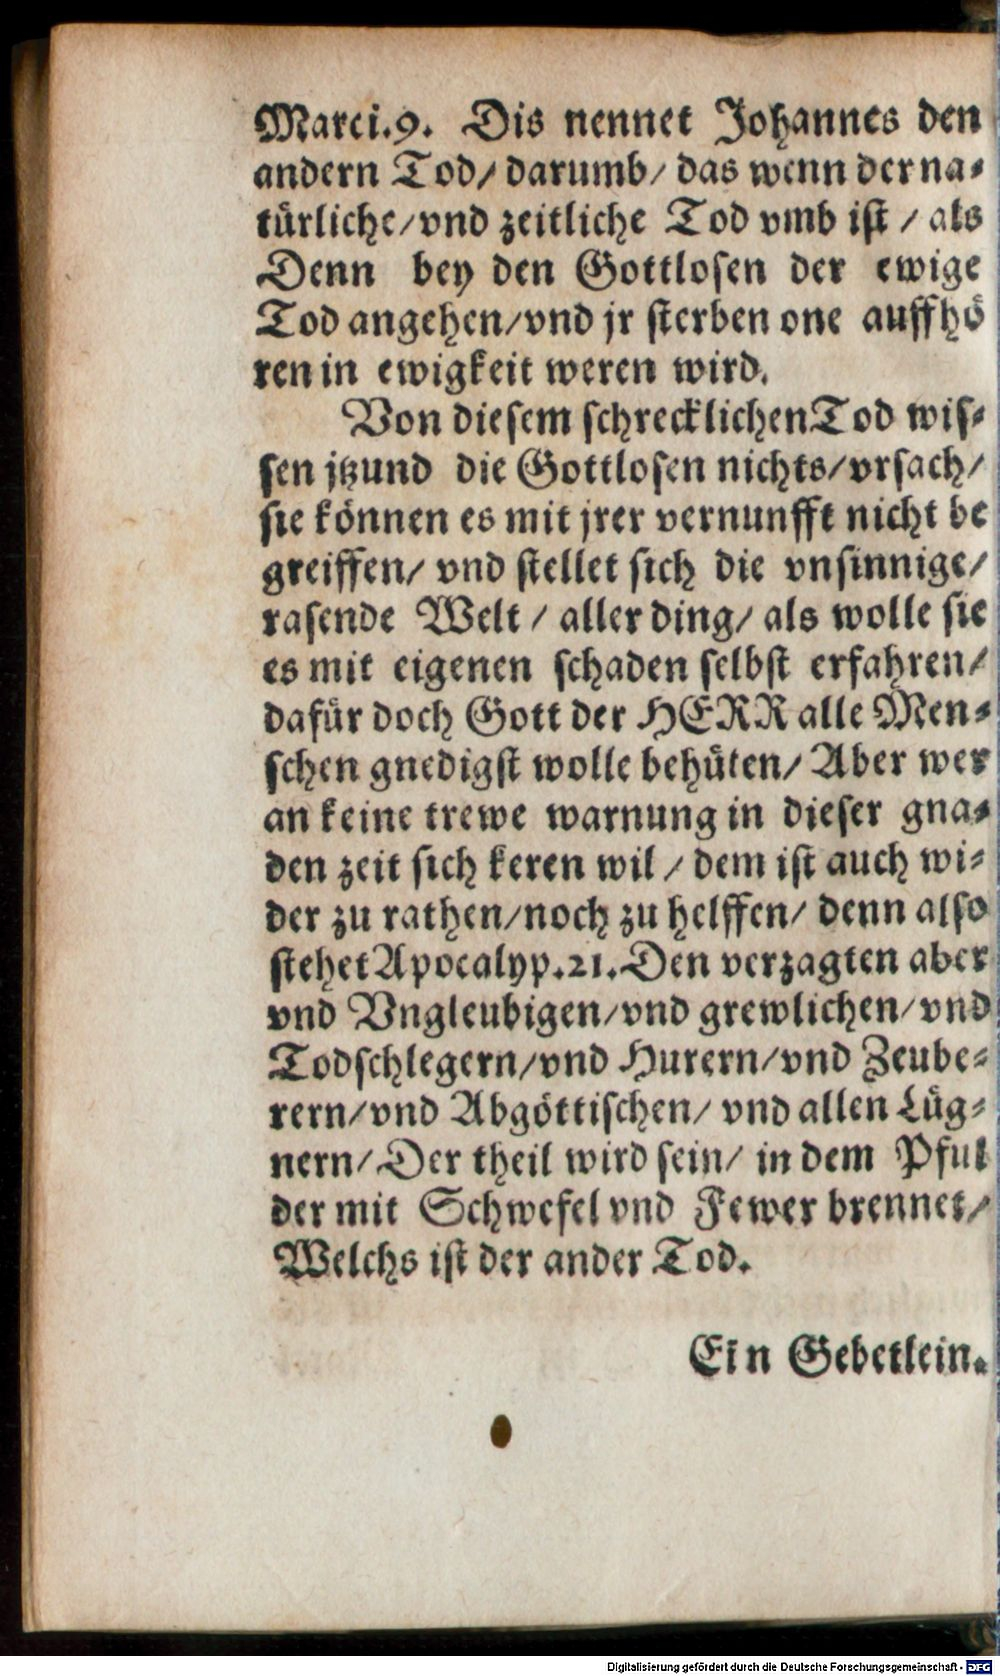 Marci.9. Dis nennet Johannes den
andern Tod/ darumb/ das wenn der na⸗
türliche/vnd zeitliche Tod vmb ist / als
Denn bey den Gottlosen der ewige
Tod angehen/vnd jr sterben one auffhö
ren in ewigkeit weren wird.
Von diesem schrecklichen Tod wis⸗
sen jtzund die Gottlosen nichts/vrsach/
sie können es mit jrer vernunfft nicht be
greiffen/ vnd stellet sich die vnsinnige/
rasende Welt / aller ding/ als wolle sie
es mit eigenen schaden selbst erfahren/
dafür doch Gott der HERR alle Men⸗
schen gnedigst wolle behüten/ Aber wer
an keine trewe warnung in dieser gna⸗
den zeit sich keren wil / dem ist auch wi⸗
der zu rathen/noch zu helffen/ denn also
stehet Apocalyp.21. Den verzagten aber
vnd Vngleubigen/vnd grewlichen/vnd
Todschlegern/vnd Hurern/vnd Zeube⸗
rern/vnd Abgöttischen/ vnd allen Lüg⸗
nern/ Der theil wird sein/ in dem Pful
der mit Schwefel vnd Fewer brennet/
Welchs ist der ander Tod.
Ein Gebetlein.
Digitalisierung gefördert durch die Deutsche Forschungsgemeinschaft - DFG